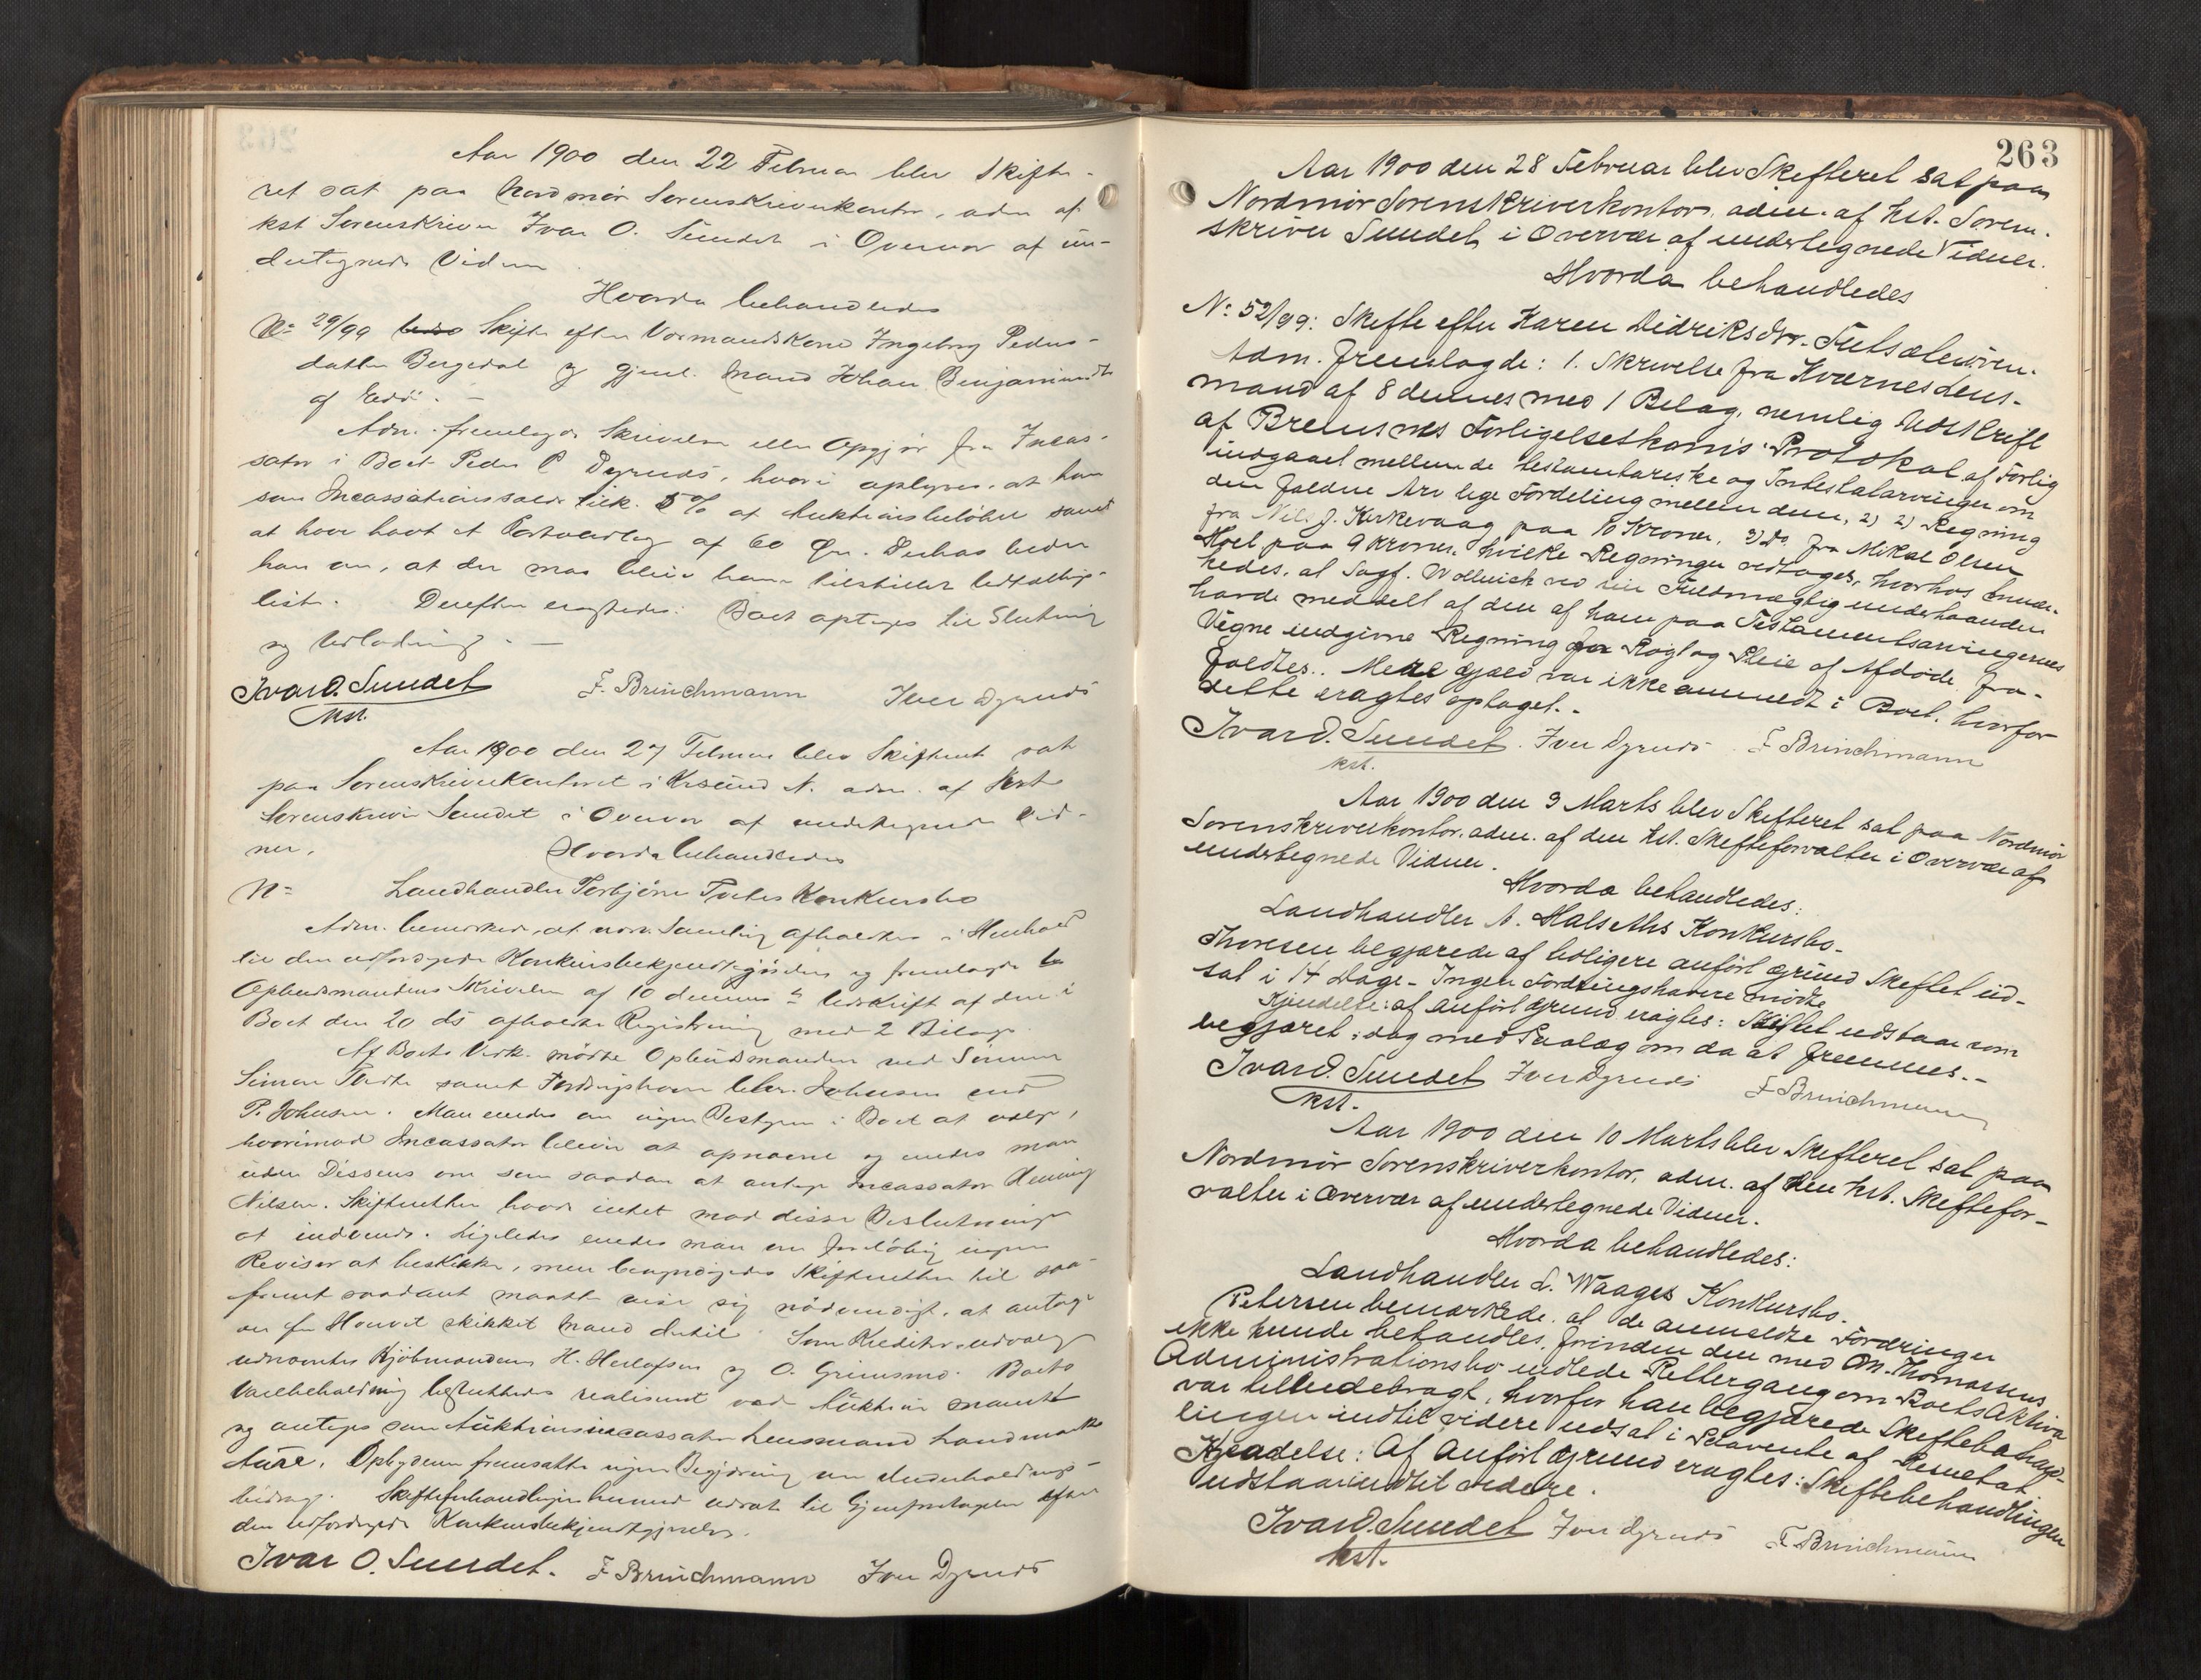 Aar 1900 den 22 Februar blev Skifte-
ret sat paa Nordmør Sorenskriverkontor, adm af
kst Sorenskriver Ivar O. Sundet i Overvær af un-
dertegnede Vidner
Hvorda behandledes
No 29/99 Skifte efter Vormandskone Ingeborg Peders-
datter Bergedal og gjenl. Mand Johan Benjaminsen
af Edø. -
Adm. fremlagde Skrivelse eller Opgjør fra Incas-
sator i Boet Peder P Dyrnæs, hvori oplyses, at han
som Incassationssalær tilk. 5% af Auktionsbeløbet samt
at have havt et Portoudlæg af 60 Øre. Derhos beder
han om, at der maa blive ham tilstillet
liste. Derefter eragtedes: Boet optages til Slutning
og Udlodning. -
Ivar O. Sundet F. Brinchmann Iver Dyrnæs
kst.
Aar 1900 den 27 Februar blev Skifteret sat
paa Sorenskriverkontoret i Krsund N. adm. af kst
Sorenskriver Sundet i Overvær af undertegnede Vid-
ner.
Hvorda behandledes
No Landhandler Torbjørn Konkursbo
Adm. bemærket, at nærv. Samling afholdtes i Henhold
til den udfærdigede Konkursbekjendtgjørelse og fremlagde
Opbudsmandens Skrivelse af 10 dennes Udskrift af den i
Boet den 20 ds afholdte Registrering med 2 Bilage.
Af Boets Vedk. mødte Opbudsmanden ved Sønnen
Simon samt Fordringshaver Johnsen ved
P. Johnsen. Man enedes om ingen Bestyrer i Boet at vælge,
hvorimod Incassator bliver at opnævne og enedes man
uden Dissens om som saadan at antage Incassator Henning
Nilsen. Skifteretten havde intet mod disse Beslutninger
at indvende. Ligeledes enedes man om foreløbig ingen
Revisor at beskikke, men bemyndigedes Skifteretten til saa-
fremt saadant maatte vise sig nødvendigt, at antage
en for Hvervet skikket Mand dertil. Som Kreditorudvalg
udnævntes Kjøbmændene H. Herlofsen og O. Grimsmo. Boets
Varebeholdning besluttedes realiseret ved Auktion snarest
og antages som Auktionsincassator Lensmand Landmark
Aure. Opbyderen fremsatte ingen Begjæring om Underholdnings-
bidrag. Skifteforhandlingen herved udsat til Gjenfortagelse efter
den udfærdigede Konkursbekjendtgjørelse.
Ivar O. Sundet. F Brinchmann Iver Dyrnæs
263
Aar 1900 den 28 Februar blev Skifteret sat paa
Nordmør Sorenskriverkontor, adm. af kst. Soren-
skriver Sundet i Overvær af undertegnede Vidner.
Hvorda behandledes
No 52/99: Skifte efter Karen Didriksdtr.
Adm. fremlagde: 1. Skrivelse fra Kværnes Lens-
mand af 8 dennes med 1 Bilag, nemlig Udskrift
af Bremsnes Forligelseskomis. Protokol af Forlig
indgaaet mellem de testamentariske og Intestatarvinger om
den faldne Arv lige Fordeling mellem dem, 2) 2) Regning
fra Nils J. Kirkevaag paa 10 Kroner, 3) Do fra Mikal Olsen
Hoel paa 9 Kroner, hvilke Regninger vedtoges, hvorhos bemær-
kedes, at Sagf. Wollnick ved sin Fuldmægtig underhaanden
havde meddelt af den af ham paa Testamentsarvingernes
Vegne indgivne Regning for Røgt og Pleie af Afdøde fra-
faldtes.. Mere Gjæld var ikke anmeldt i Boet, hvorfor
dette eragtes optaget. -
Ivar O. Sundet. Iver Dyrnæs F Brinchmann
kst.
Aar 1900 den 3 Marts blev Skifteret sat paa Nordmør
Sorenskriverkontor, adm. af den kst. Skifteforvalter i Overvær af
undertegnede Vidner.
Hvorda behandledes:
Landhandler A. Halseths Konkursbo.
Thoresen begjærede af tidligere anført Grund Skiftet ud-
sat i 14 Dage - Ingen Fordringshavere mødte
Kjendelse: af anført Grund eragtes: Skiftet udstaar som
begjæret i dag med Paalæg om da at fremmes. -
Ivar O. Sundet Iver Dyrnæs F Brinchmann
kst.
Aar 1900 den 10 Marts blev Skifteret sat paa
Nordmør Sorenskriverkontor, adm. af den kst. Skiftefor-
valter i Overvær af undertegnede Vidner.
Hvorda behandledes:
Landhandler L. Waages Konkursbo.
Petersen bemærkede, at de anmeldte Fordringer
ikke kunde behandles, forinden den med M. Thomassens
Administrationsbo indlede Rettergang om Boets Aktiva
var tilendebragt, hvorfor han begjærede Skiftebehand-
lingen indtil videre udsat i Paavente af Resultat
Kjendelse: Af anført Grund eragtes: Skiftebehandlingen
udstaar indtil videre.
Ivar O. Sundet Iver Dyrnæs F Brinchmann
kst.